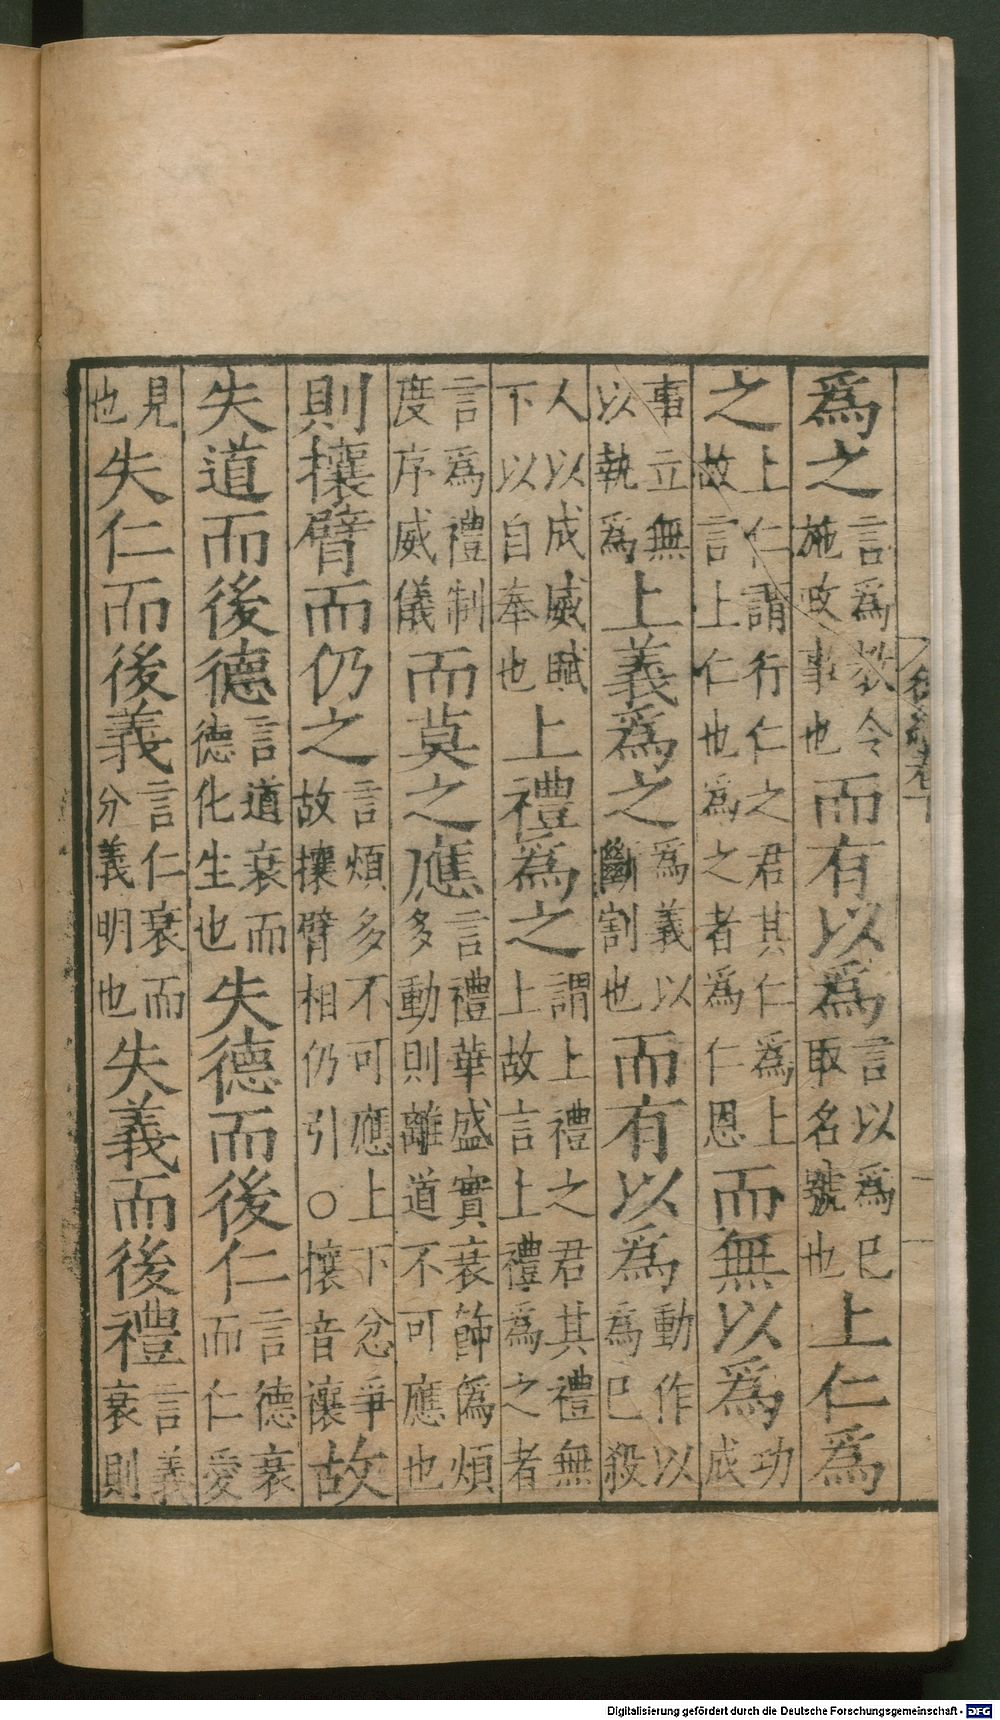 爲之言爲教令施政事也而有以爲言以爲巳取名號也上仁爲
之上仁謂行仁之君其仁爲上故言上仁也爲之者爲仁恩而無以爲功成
事立無以執爲上義爲之爲義以斷割也而有以爲動作以爲巳殺
人以成威賦下以自奉也上禮爲之謂上禮之君其禮無上故言上禮爲之者
言爲禮制度序威儀而莫之應言禮華盛實衰飾僞煩多動則離道不可應也
則攘臂而仍之言煩多不可應上下忿爭故攘臂相仍引○攘音穰故
失道而後德言道衰而德化生也失德而後仁言德衰而仁愛
見也失仁而後義言仁衰而分義明也失義而後禮言義衰則
Digitalisierung gefördert durch die Deutsche Forschungsgemeinschaft - DFG